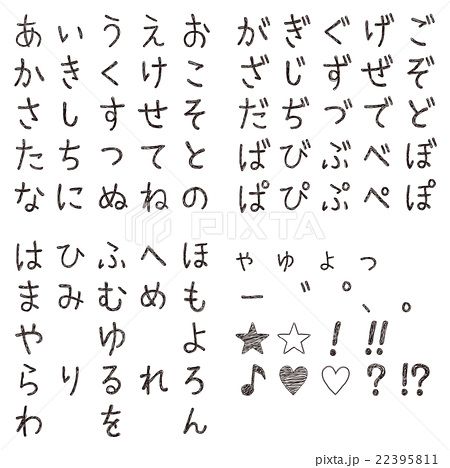 あ い う え お
か き く け こ
さ し す せ そ
た ち つ て と
な に ぬ ね の
が ぎ ぐ げ ご
ざ じ ず ぜ ぞ
だ ぢ づ で ど
ば び ぶ べ ぼ
ぱ ぴ ぷ ぺ ぽ
PIXTA
は ひ ふ へ ほ
ま み む め も
や ゆ よ
ら り る れ ろ
わ を ん
ゃ ゅ ょ っ
ー ゛ ゜ 、 。
★ ☆ ! !!
♪ ♥ ♡ ? !?
pixta.jp - 22395811